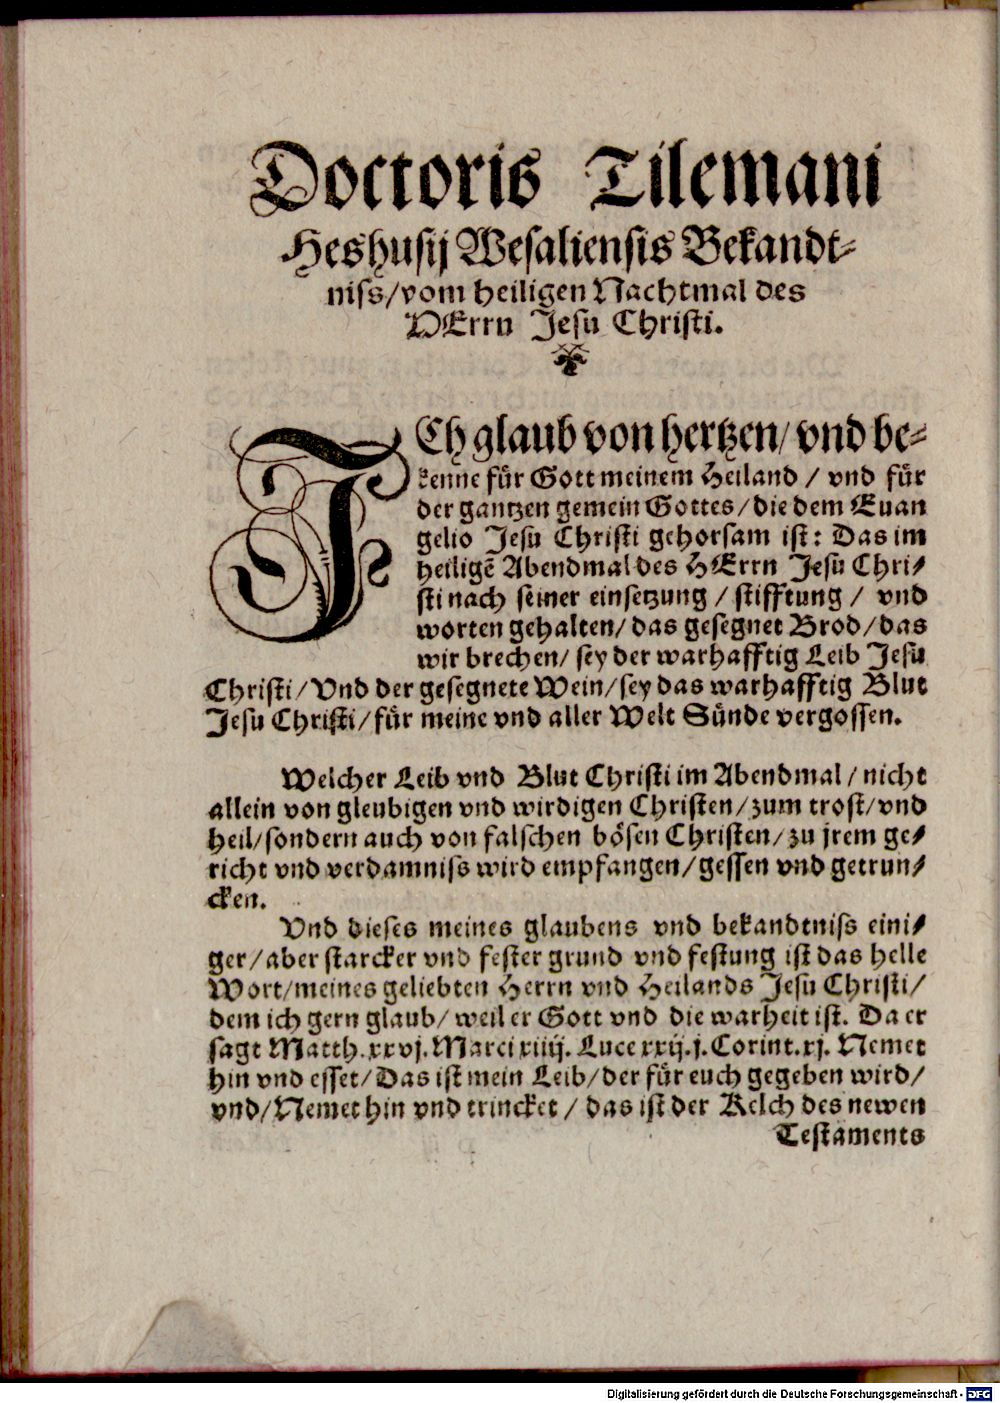 Doctoris Tilemani
Heshusij Wesaliensis Bekandt-
niss/vom heiligen Nachtmal des
HErrn Jesu Christi.
ICh glaub von hertzen/ vnd be-
kenne für Gott meinem Heiland / vnd für
der gantzen gemein Gottes/die dem Euan
gelio Jesu Christi gehorsam ist: Das im
heiligẽ Abendmal des HErrn Jesu Chri-
sti nach seiner einsetzung / stifftung / vnd
worten gehalten/ das gesegnet Brod/das
wir brechen/ sey der warhafftig Leib Jesu
Christi/Vnd der gesegnete Wein/sey das warhafftig Blut
Jesu Christi/für meine vnd aller Welt Sünde vergossen.
Welcher Leib vnd Blut Christi im Abendmal/nicht
allein von gleubigen vnd wirdigen Christen/zum trost/vnd
heil/sondern auch von falschen bösen Christen/zu jrem ge-
richt vnd verdamniss wird empfangen/gessen vnd getrun-
cken.
Vnd dieses meines glaubens vnd bekandtniss eini-
ger/aber starcker vnd fester grund vnd festung ist das helle
Wort/meines geliebten Herrn vnd Heilands Jesu Christi/
dem ich gern glaub/ weil er Gott vnd die warheit ist. Da er
sagt Matth.xxvj.Marci xiiij. Luce xxij.j.Corint.xj. Nemet
hin vnd esset/Das ist mein Leib/der für euch gegeben wird/
vnd/Nemet hin vnd trincket / das ist der Kelch des newen
Testaments
Digitalisierung gefördert durch die Deutsche Forschungsgemeinschaft - DFG